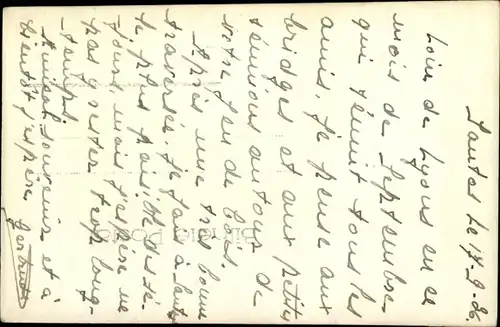 Santos le 17-9-86.
Loin de Lyons en ce
mois de Septembre
qui réunit tous les
amis. Je pense aux
bridges et aux petits
témions autour de
votre feu de bois.
Après une très bonne
traversée. Je fais à Santos
le plus paisible des sé-
jours mais j'espère ne
pas y rester trop long-
temps.
Amical souvenir et à
bientôt j'espère
Gertrude